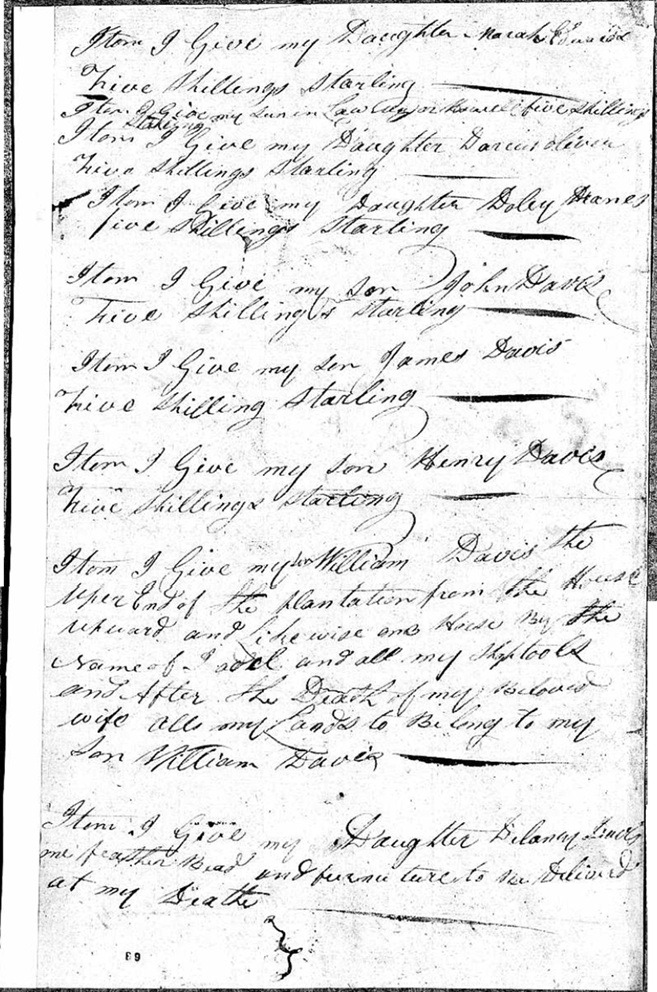 Item I Give my Daughter Marah Edwards
five shillings starling
Item I Give my sun in Law Major Howell five shillings
starling
Item I Give my Daughter Darcus oliver
five shillings starling
Item I Give my Daughter Doley Hanes
five shillings starling
Item I Give my son John Davis
five shillings starling
Item I Give my son James Davis
five shilling starling
Item I Give my son Henry Davis
five shillings starling
Item I Give my son William Davis the
uper End of the plantation from the House
upward and Likewise one Horse By the
Name of and all my shop tools
and After the Death of my Beloved
wife all my Lands to Belong to my
Son William Davis
Item I Give my Daughter Delaney
one feather Bead and furniture to be Deliverd
at my Death
89